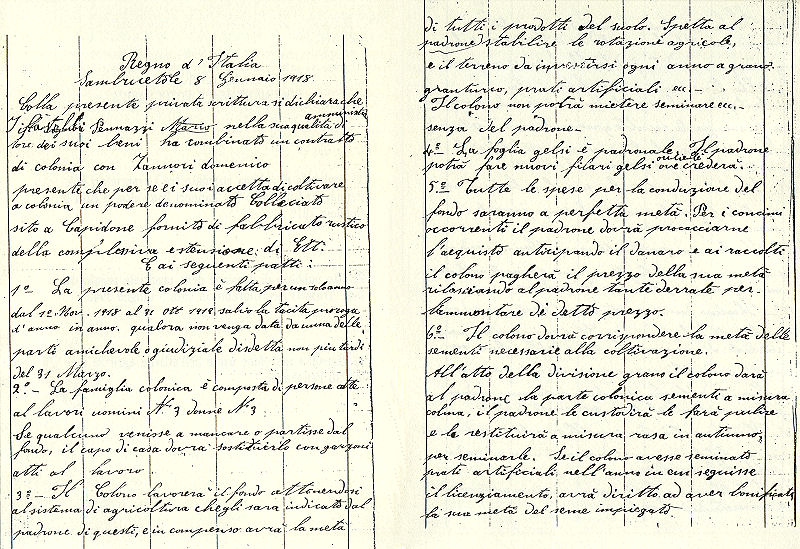 Regno d'Italia
Sambucetole 8 Gennaio 1918
Colla presente privata scrittura si dichiara che
Pennazzi Marco nella sua qualità di amministra
tore dei suoi beni ha combinato un contratto
di colonia con Zannori domenico
presente, che per se e i suoi accetta di coltivare
a colonia un podere denominato Collecciato
sito a Capidone fornito di fabbricato rustico
della complessiva estensione di Ett.
E ai seguenti patti:
1º La presente colonia è fatta per un solo anno
dal 1º Nov. 1918 al 31 Ott 1919, salvo la tacita proroga
d'anno in anno. qualora non venga data da una delle
parti amichevole o giudiziale disdetta non piu tardi
del 31 Marzo.
2º - La famiglia colonica è composta di persone atte
al lavori uomini Nº 3 donne Nº 3
Se qualcuno venisse a mancare o partisse dal
fondo, il capo di casa dovrà sostituirlo con garzoni
atti al lavoro
3º - Il Colono lavorerà il fondo attenendosi
al sistema di agricoltura che gli sara indicato dal
padrone di questi, e in compenso avrà la metà
di tutti i prodotti del suolo. Spetta al
padrone stabilire le rotazione agricole,
e il terreno da investirsi ogni anno a grano
granturco, prati artificiali ecc -
Il colono non potrà mietere seminare ecc, -
senza del padrone -
4º - La foglia gelsi è padronale, Il padrone
potrà fare nuovi filari gelsi ove crederà.
5º - Tutte le spese per la conduzione del
fondo saranno a perfetta metà. Per i concimi
occorrenti il padrone dovrà procacciarne
l'acquisto anticipando il danaro e ai raccolti
il colono pagherà il prezzo della sua metà
rilasciando al padrone tante derrate per
l'ammontare di detto prezzo.
6º - Il colono dovrà corrispondere la metà delle
sementi necessarie alla coltivazione.
All'atto della divisione grano il colono darà
al padrone la parte colonica sementi a misura
colma, il padrone le custodirà le farà pulire
e le restituirà a misura rasa in autunno,
per seminarle. Se il colono avesse seminato
prati artificiali nell'anno in cui seguisse
il licenziamento, avrà diritto ad aver bonificata
la sua metà del seme impiegato